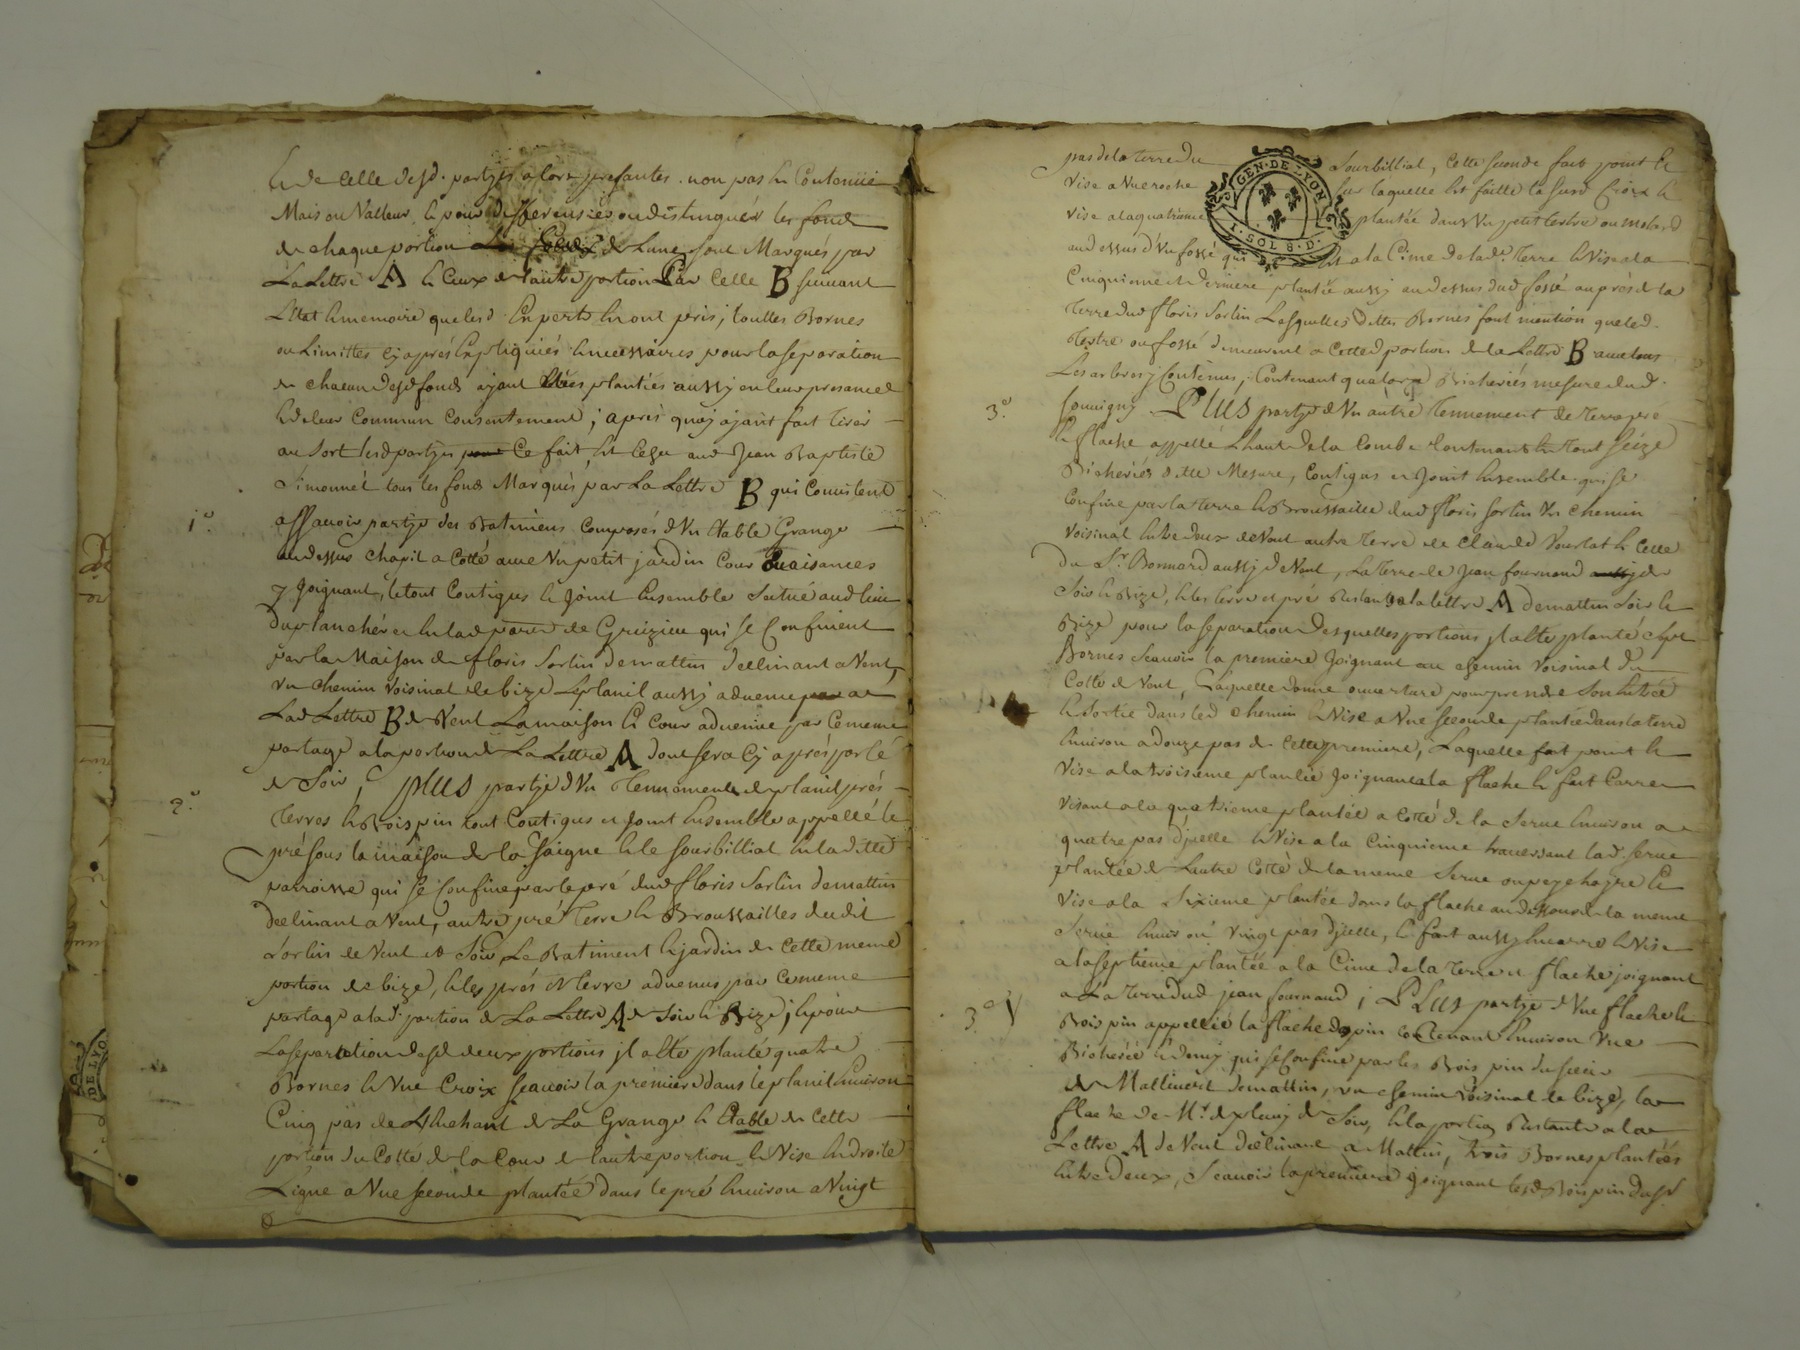 & de celle desd. partyes alors presantes. non pas la Contenue
Mais au Valleur, & pour differensier ou distinguér les fonds
de chaque portion de Lune sont Marqués par
La Lettre A & Ceux de lautre portion Par Celle B suivant
L'Etat & memoire que lesd. Experts en ont pris, touttes Bornes
ou Limittes cy aprés Expliquiés & necessaires pour la separation
de chacun desd fonds ayant étées plantées aussy en leur presance
& de leur Commun Consentement ; aprés quoy ayant fait tirér
au sort lesd partyes Ce fait, Est Echu aud Jean Baptiste
Simonnét tous les fonds Marqués par La Lettre B qui Consistent
1°. assavoir partye des Batiments Composés d'Un Etable Grange
au dessus chapit a Cotté avec Un petit jardin Cour & aisances
y Joignant, le tout Contigus & Joint Ensemble Scitué aud lieu
du planchér en lad parr. de Grézieu qui se Confinent
par la Maison de floris Sorlin de mattin declinant a Vent,
Un chemin Voisinal de bize Le planil aussy advenu a
Lad Lettre B de Vent La maison & Cour advenue par Ce meme
partage a la portion de La Lettre A dont sera Cy aprés parlé
2°. de Soir, plus partye d'Un Tennement de planil prés
Terres & Bois pin tout Contigus et Joint Ensemble appellé le
pré sous la maison de la Saigne & le sourbilliat En la ditte
parroisse qui se Confine par le pré dud floris Sorlin de mattin
declinant a Vent, autre pré Terre & Broussailles dudit
Sorlin de Vent et Soir Le Batiment & jardin de Cette meme
portion de bize, & les prés et Terre advenus par Ce meme
partage a lad. portion de La Lettre A de Soir & Bize ; & pour
La separation desd deux portions il a Eté planté quatre
Bornes & Une Croix scavoir la premiere dans le planil Environ
Cinq pas de La Grange & Etable de Cette
portion du Cotté de la Cour de lautre portion & Vise En droite
Ligne a Une seconde plantée dans le pré Environ a Vingt
pas de la Terre du Sourbilliat, Cette seconde fait point &
Vise a Une roche sur laquelle Est faitte la susd Croix &
Vise a la quatrieme plantée dans Un petit tertre ou molard
GEN. DE LYON
1. SOL 8. D.
au dessus d'Un fossé qui Est a la Cime de lad. Terre & Vise a la
Cinquieme & derniere plantée aussy au dessus dud fossé auprés de la
Terre dud floris Sorlin Lesquelles dittes Bornes font mention que led.
Tertre ou fossé demeurent a Cette d portion de la Lettre B avec tous
Les arbres y Contenus, Contenant quatorze Bicherées mesure dud.
3°. Souvigny. Plus partye d'Un autre Tennement de Terre pré
& flache appellé L'haut de la Combe Contenant En tout seize
Bicherées ditte Mesure, Contigus et Joint Ensemble qui se
Confine par la Terre & Broussaille dud floris sorlin Un Chemin
Voisinal Entre deux de Vent autre Terre de Claude Vournat & Celle
du Sr. Bonnard aussy de Vent, La Terre de Jean fournand de
Soir & Bize, & les terre et pré Restant de la lettre A de mattin Soir &
Bize pour la separation desquelles portions il a Eté planté sept
Bornes Scavoir la premiere Joignant au chemin Voisinal du
Cotté de Vent, Laquelle donne ouverture pour prendre Son Entrée
& Sortie dans led chemin & Vise a Une seconde plantée dans la terre
Environ a douze pas de Cette premiere, Laquelle fait point &
Vise a la troisieme plantée Joignant a la flache & fait Carre
Visant a la quatrieme plantée a Cotté de la Serve Environ a
quatre pas d'jcelle & Vise a la Cinquieme traversant lad. serve
plantée de L'autre Cotté de la meme Serve &
Vise a la Sixieme plantée dans la flache au dessous de la meme
Serve Environ vingt pas d'jcelle, & fait aussy & Vise
a la septieme plantée a la Cime de la Terre et flache joignant
3°. a La Terre dud jean fournaud ; Plus partye d'Une flache &
Bois pin appellée la flache du pin Contenant Environ Une
Bicherée & demy qui se Confine par les Bois pin du sieur
de Mallinert de mattin, un chemin Voisinal de bize, la
flache de Mr. de de Soir, & la portion Restante a la
Lettre A de Vent declinant a Mattin, trois Bornes plantées
Entre deux, Scavoir la premiere Joignant lesd Bois pin dud Sr
DE LYO